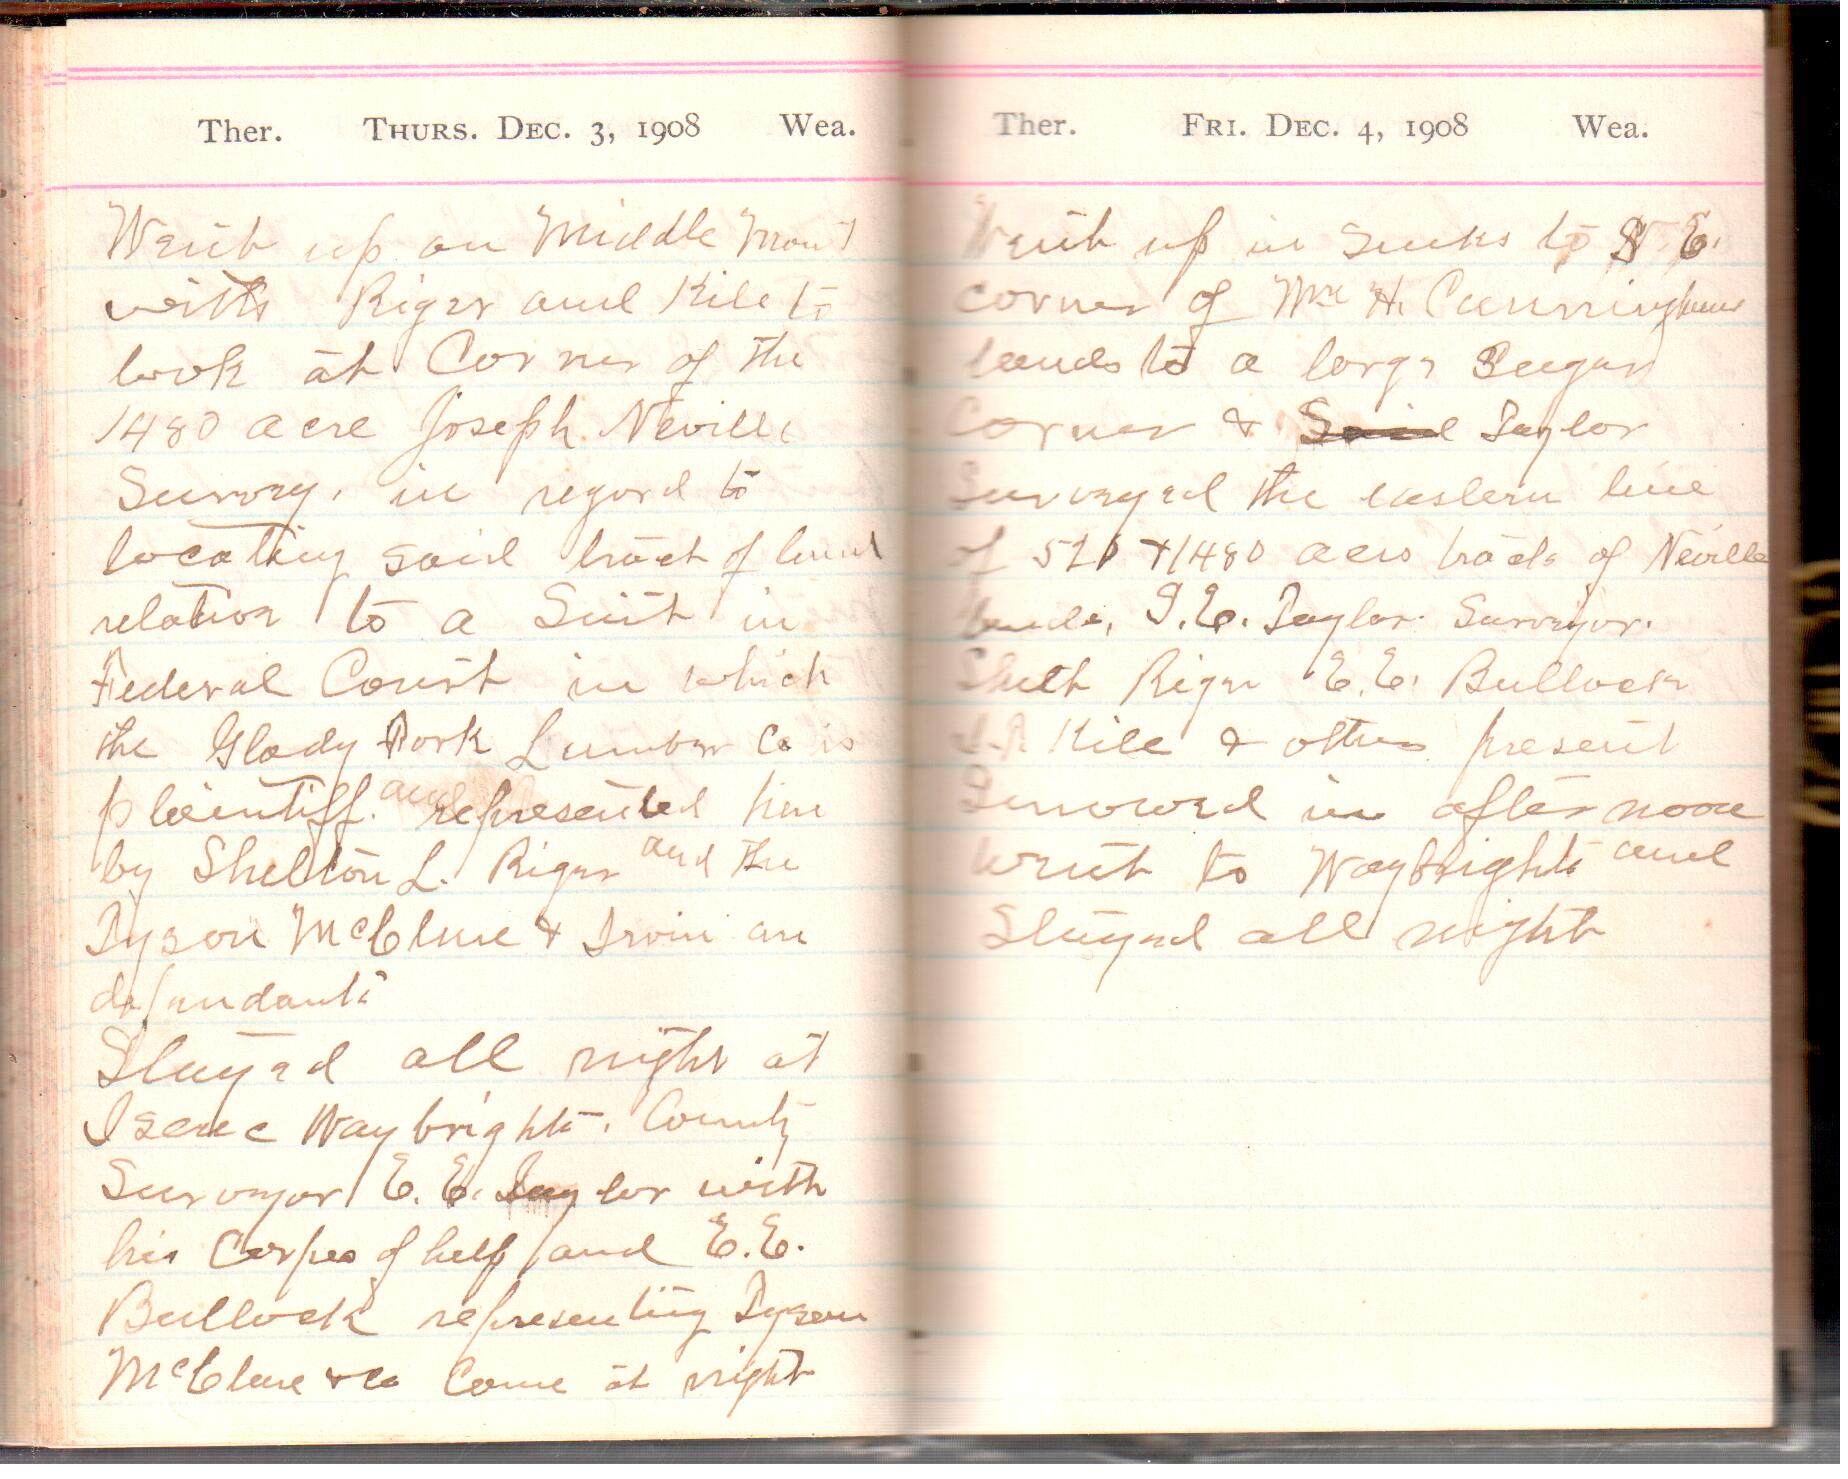 Ther. Thurs. Dec. 3, 1908 Wea.
Went up on Middle Mount
with Riger and Kile to
look at Corner of the
1480 acre Joseph Neville
Survey, in regard to
locating said tract of land
relation to a Suit in
Federal Court in which
the Glady Fork Lumber Co is
plaintiff. and represented here
by Shelton L. Riger and the
Tyson McClure & Irvin are
defendants
Stayed all night at
Isaac Waybrights. County
Surveyor E. E. Taylor with
his Corpes of help and E. E.
Bullock representing Tyson
McClure & Co Come at night
Ther. Fri. Dec. 4, 1908 Wea.
Went up in Sinks to E.
corner of Wm H. Cunningham
lands to a large Sugar
Corner & Said Taylor
Surveyed the eastern line
of & 1480 acre tracts of Neville
lands, Taylor Surveyor.
Shelt Riger E. E. Bullock
Kile & others present
Snowed in afternoon
went to Waybrights and
Stayed all night